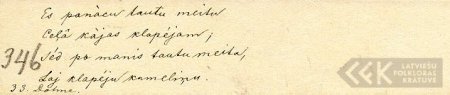 Es panācu tautu meitu
Ceļā kājas klapējam;
346 Sēd po manis tautu meita,
Laj klapēju kumeliņu.
33.
LATVIEŠU
FOLKLORAS
KRĀTUVE